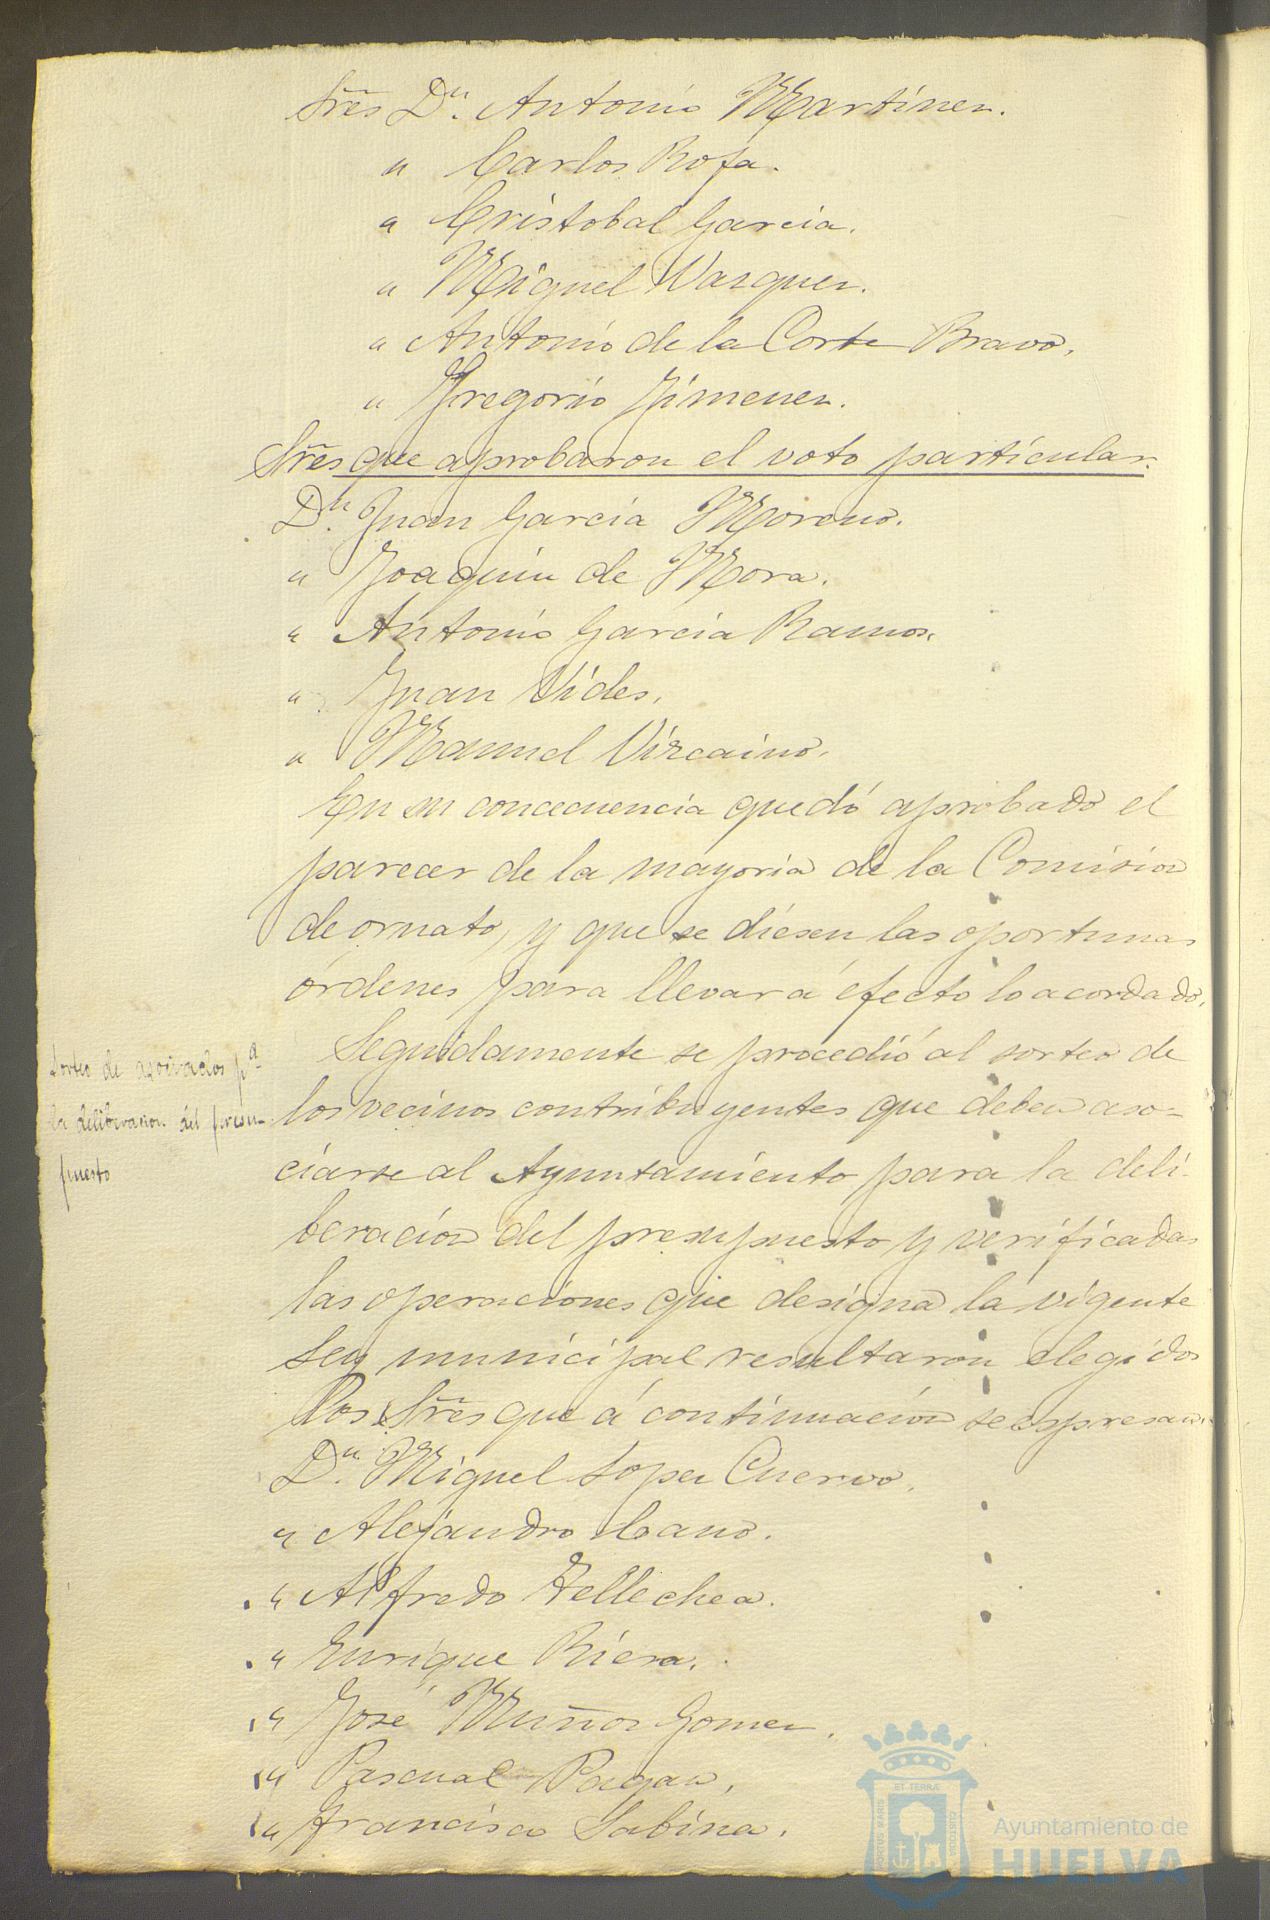 Sres Dn. Antonio Martinez.
" Carlos Rofa.
" Cristobal Garcia.
" Miguel Vazquez.
" Antonio de la Corte Bravo.
" Gregorio Jimenez.
Sres que aprobaron el voto particular.
Dn. Juan Garcia Moreno.
" Joaquin de Mora.
" Antonio Garcia Ramos.
" Juan Vides.
" Manuel Vizcaino.
En su concecuencia quedó aprobado el
parecer de la mayoria de la Comision
de ornato, y que se diesen las oportunas
órdenes para llevar á efecto lo acordado.
Sorteo de asociados pa
la deliberacion del presu-
puesto
Seguidamente se procedió al sorteo de
los vecinos contribuyentes que deben aso-
ciarse al Ayuntamiento para la deli-
beracion del presupuesto y verificadas
las operaciones que designa la vigente
Ley municipal resultaron elegidos
los Sres que á continuacion se espresan.
Dn. Miguel Lopez Cuervo.
" Alejandro Cano.
" Alfredo Tellechea.
" Enrique Riera.
" José Muñoz Gomez.
" Pascual Pagan.
" Francisco Sabina.
ET TERRÆ
PORTUS MARIS
CUSTODIA
Ayuntamiento de
HUELVA